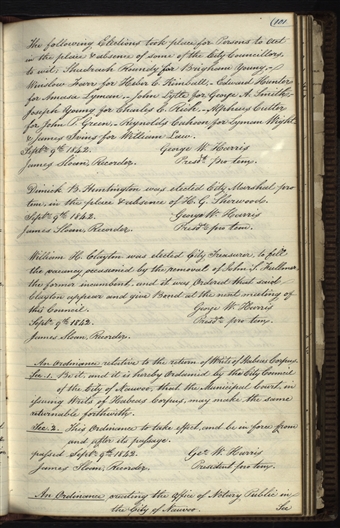 (101.
The following Elections took place for Persons to act
in the place & absence of some of the City Councillors,
to wit; Shadrach Roundy for Brigham Young,
Winslow Farr for Heber C. Kimball, Edward Hunter
for Amasa Lyman, John Lytle for George A. Smith,
Joseph Young for Charles C. Rich, Alpheus Cutler
for John P. Green, Reynolds Cahoon for Lyman Wight
& James Ivins for William Law.
Septr. 9th. 1842. George W. Harris
James Sloan, Recorder. Presdt. pro tem.
Dimick B. Huntington was elected City Marshal pro
tem, in the place & absence of H. G. Sherwood.
Septr. 9th. 1842. George W. Harris
James Sloan, Recorder. Presdt. pro tem.
William H. Clayton was elected City Treasurer, to fill
the vacancy occasioned by the removal of John S. Fullmer,
the former incumbent, and it was Ordered that said
Clayton appear and give Bond at the next meeting of
this Council. George W. Harris
Septr. 9th. 1842. Presdt. pro tem.
James Sloan, Recorder.
An Ordinance relative to the return of Writs of Habeas Corpus.
Sec. 1. Be it, and it is hereby Ordained by the City Council
of the City of Nauvoo, that the Municipal Court, in
issuing Writs of Habeas Corpus, may make the same
returnable forthwith.
Sec. 2. This Ordinance to take effect, and be in force from
and after its passage.
passed Septr. 9th. 1842. Geo. W. Harris
James Sloan, Recorder. President pro tem.
An Ordinance, creating the Office of Notary Public in
the City of Nauvoo. Sec